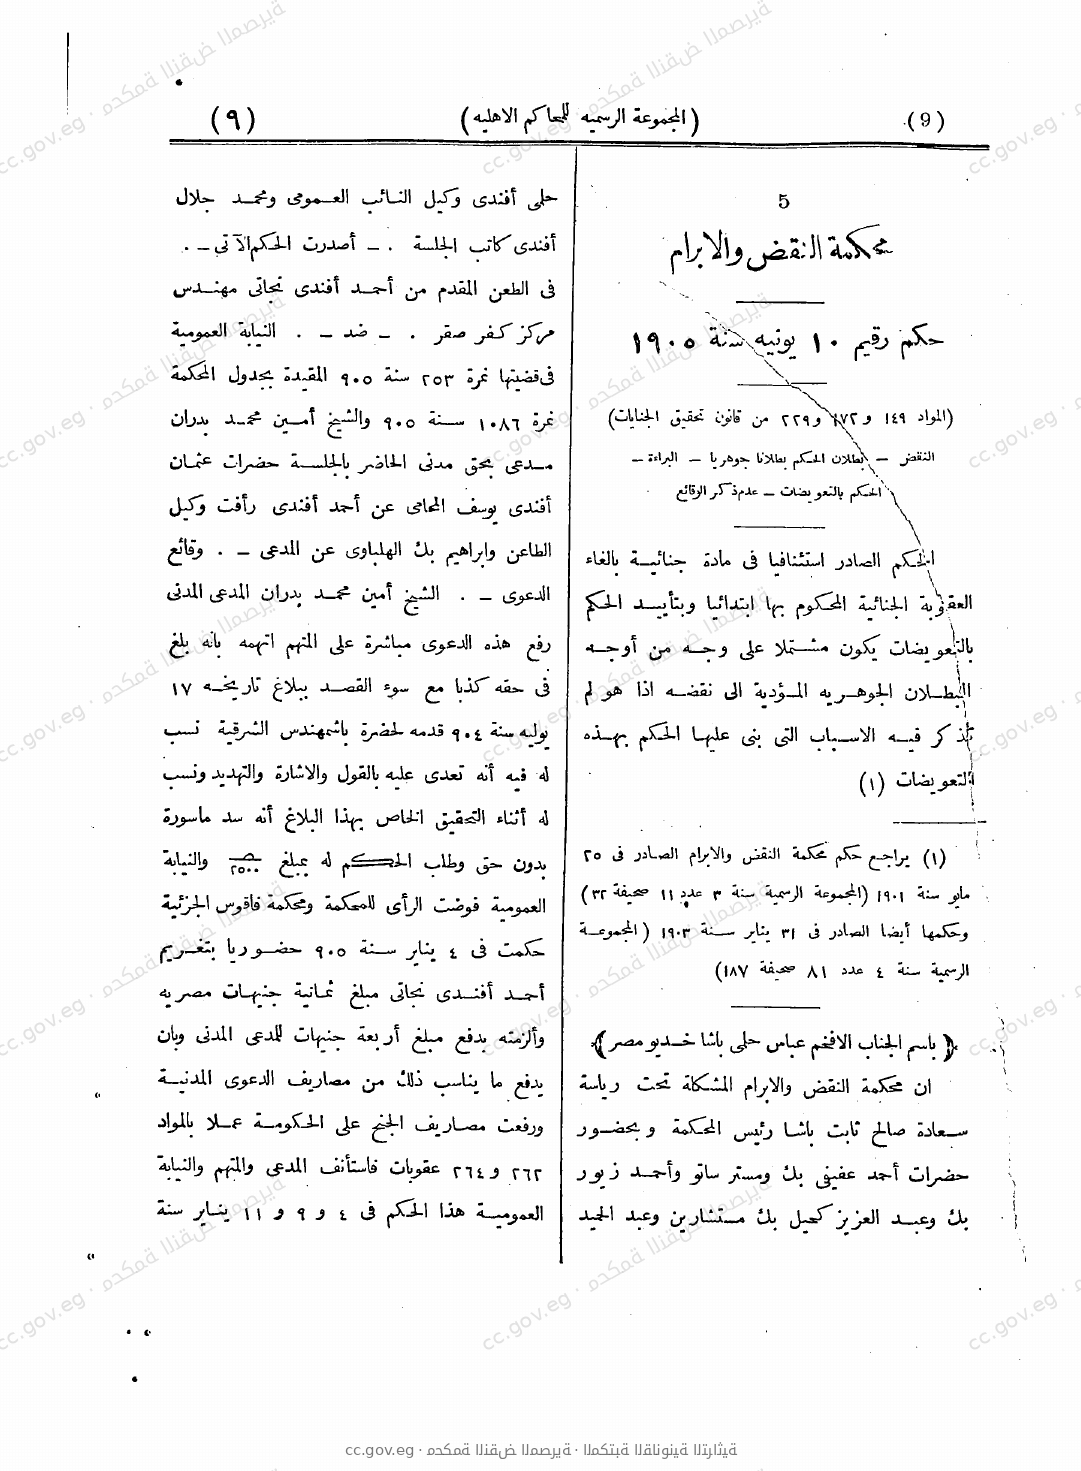 (٩) (المجموعة الرسميه للمحاكم الاهليه) (9)
5
محكمة النقض والابرام
حكم رقيم ١٠ يونيه سنة ١٩٠٥
(المواد ١٤٩ و١٧٢ و٢٢٩ من قانون تحقيق الجنايات)
النقض – بطلان الحكم بطلانا جوهريا – البراءة –
الحكم بالتعويضات – عدم ذكر الوقائع
الحكم الصادر استئنافيا فى مادة جنائية بالغاء
العقوبة الجنائية المحكوم بها ابتدائيا وبتأييد الحكم
بالتعويضات يكون مشتملا على وجه من أوجه
البطلان الجوهريه المؤدية الى نقضه اذا هو لم
تذكر فيه الاسباب التى بنى عليها الحكم بهذه
التعويضات (١)
(١) يراجع حكم محكمة النقض والابرام الصادر فى ٢٥
مايو سنة ١٩٠١ (المجموعة الرسمية سنة ٣ عدد ١١ صحيفة ٣٢)
وحكمها أيضا الصادر فى ٣١ يناير سنة ١٩٠٣ (المجموعة
الرسمية سنة ٤ عدد ٨١ صحيفة ١٨٧)
﴿ باسم الجناب الافخم عباس حلمى باشا خديو مصر ﴾
ان محكمة النقض والابرام المشكلة تحت رياسة
سعادة صالح ثابت باشا رئيس المحكمة وبحضور
حضرات أحمد عفيفى بك ومستر ساتو وأحمد زيور
بك وعبد العزيز كحيل بك مستشارين وعبد الحميد
حلمى أفندى وكيل النائب العمومى ومحمد جلال
أفندى كاتب الجلسة . – أصدرت الحكم الآتى – .
فى الطعن المقدم من أحمد أفندى نجاتى مهندس
مركز كفر صقر . – ضد – . النيابة العمومية
فى قضيتها نمرة ٢٥٣ سنة ٩٠٥ المقيدة بجدول المحكمة
نمرة ١٠٨٦ سنة ٩٠٥ والشيخ أمين محمد بدران
مدعى بحق مدنى الحاضر بالجلسة حضرات عثمان
أفندى يوسف المحامى عن أحمد أفندى رأفت وكيل
الطاعن وابراهيم بك الهلباوى عن المدعى – . وقائع
الدعوى – . الشيخ أمين محمد بدران المدعى المدنى
رفع هذه الدعوى مباشرة على المتهم اتهمه بانه بلغ
فى حقه كذبا مع سوء القصد ببلاغ تاريخه ١٧
يوليه سنة ٩٠٤ قدمه لحضرة باشمهندس الشرقية نسب
له فيه أنه تعدى عليه بالقول والاشارة والتهديد ونسب
له أثناء التحقيق الخاص بهذا البلاغ أنه سد ماسورة
بدون حق وطلب الحكم له بمبلغ ٢٥٠٠ والنيابة
العمومية فوضت الرأى للمحكمة ومحكمة فاقوس الجزئية
حكمت فى ٤ يناير سنة ٩٠٥ حضوريا بتغريم
أحمد أفندى نجاتى مبلغ ثمانية جنيهات مصريه
وألزمته بدفع مبلغ أربعة جنيهات للمدعى المدنى وبان
يدفع ما يناسب ذلك من مصاريف الدعوى المدنية
ورفعت مصاريف الجنح على الحكومة عملا بالمواد
٢٦٢ و٢٦٤ عقوبات فاستأنف المدعى والمتهم والنيابة
العمومية هذا الحكم فى ٤ و ٩ و ١١ يناير سنة
cc.gov.eg · محكمة النقض المصرية · المكتبة القانونية التراثية